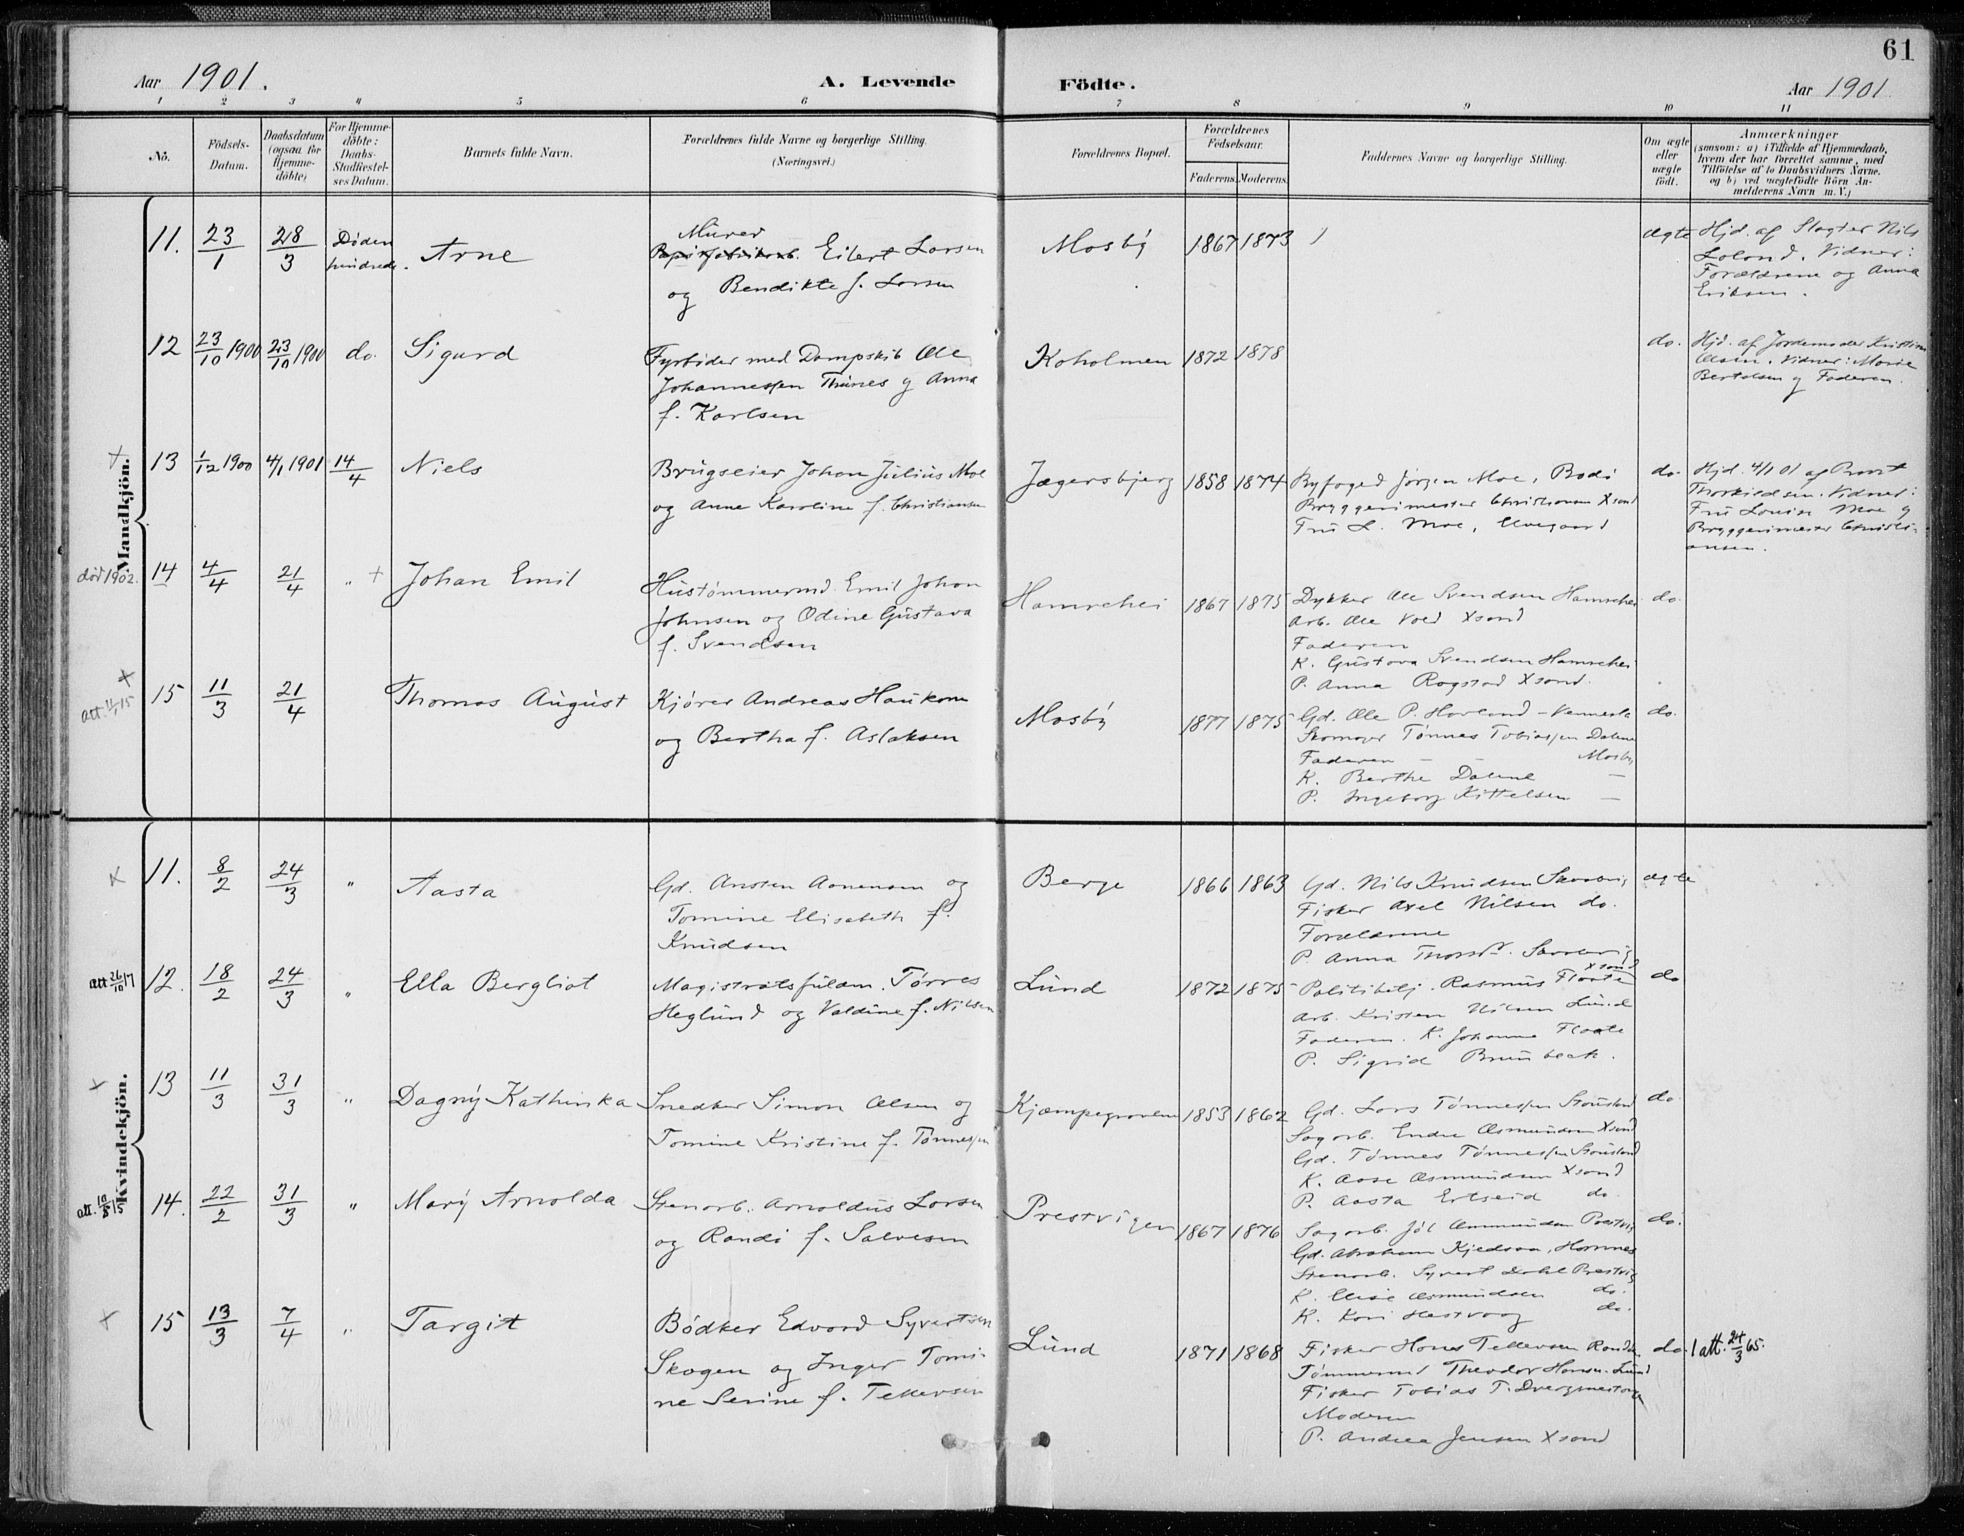 61
Aar 1901.
A. Levende
Födte.
Aar 1901
1 2 3 4 5 6 7 8 9 10 11
No.
Födsels-Datum.
Daabsdatum (ogsaa for Hjemme-döbte)
For Hjemme-döbte: Daabs-Stadfæstel-ses Datum.
Barnets fulde Navn.
Forældrenes fulde Navne og borgerlige Stilling.
(Næringsvei.)
Forældrenes Bopæl.
Forældrenes Födselsaar.
Faderens.
Moderens.
Faddernes Navne og borgerlige Stilling.
Om ægte eller uægte födt.
Anmærkninger
(saasom: a) i Tilfælde af Hjemmedaab,
hvem der har forrettet samme, med
Tilföielse af to Daabsvidners Navne,
og b) ved uægtefödte Börn An-
melderens Navn m. V.)
Mandkjön.
11. 23/1 28/3 Døden Arne
Murer Eilert Larsen
og Bendikte f. Larsen
Mosby 1867 1873 ægte
Hjd. af Slagter Nils
Loland. Vidner:
Forældrene og Anna
Eriksen.
12 23/10 1900 23/10 1900 do. Sigurd
Fyrbøder med Dampskib Ole
Johannessen Thunes og Anna
f. Karlsen
Koholmen 1872 1878 do.
Hjd. af Jordemoder Kristine
Olsen. Vidner: Marie
Bertelsen og Faderen.
+ 13 1/12 1900 4/1 1901 14/4 Niels
Brugseier Johan Julius Moe
og Anne Karoline f. Christiansen
Jægersbjerg 1858 1874
Byfoged Jørgen Moe, Bodø
Bryggerimester Christiansen Xsand
Fru L. Moe,
do.
Hjd. 4/1 01 af Provst
Thorkildsen. Vidner:
Fru Louise Moe og
Bryggerimester Christi-
ansen.
død 1902. 14 4/4 21/4 „ + Johan Emil
Hustømmermd. Emil Johan
Johnsen og Odine Gustava
f. Svendsen
Hamrehei 1867 1875
Dykker Ole Svendsen Hamrehei
Arb. Ole Vold Xsand
Faderen
K. Gustava Svendsen Hamrehei
P. Anna Rogstad Xsand.
do.
+ 15 11/3 21/4 Thomas August
Kjører Andreas Haukom
og Bertha f. Aslaksen
Mosby 1877 1875
Gd. Ole P. Hovland - Vennesla
Skomager Tønnes Tobiassen Dalene
Faderen — — Mosby
K. Berthe Dalene —
P. Ingeborg Kittelsen —
do.
Kvindekjön.
x 11. 8/2 24/3 „ Aasta
Gd. Austen Aanensen og
Tomine Elisabeth f.
Knudsen
Berge 1866 1863
Gd. Nils Knudsen
Fisker Axel Nilsen do.
Forældrene
P. Anna
ægte
att 26/10 17 12. 18/2 24/3 „ Ella Bergliot
Magistratsfuldm. Tørres
Heglund og Valdine f. Nilsen
Lund 1872 1875
Politibetj. Rasmus Floate Xsand
Arb. Kristen Nilsen Lund
Faderen. K. Johanne Floate
P. Sigrid
do
x 13 11/3 31/3 „ Dagny Kathinka
Snedker Simon Olsen og
Tomine Kristine f. Tønnessen
Kjæmpegroven 1853 1862
Gd. Lars Tønnessen
Sagarb. Endre Asmundsen Xsand
Gd. Tønnes Tønnessen
K. Aase Asmundsen Xsand
P. Aasta Ertseid do.
do.
att. 14. 22/2 31/3 „ Mary Arnolda
Stenarb. Arnoldus Larsen
og Randi f. Salvesen
Prestvigen 1867 1876
Sagarb. Jol Asmundsen Prestvig
Gd. Abraham Kjedsaa, Hornnes
Stenarb. Syvert Dahl Prestvig
K. Elise Asmundsen do.
K. Kari Hestvaag do.
do.
x 15 13/3 7/4 „ Targit
Bødker Edvard Syvertsen
Skogen og Inger Tomi-
ne Serine f. Tellevsen
Lund 1871 1868
Fisker Hans Tellevsen Randøen
Tømmermd Theodor Hansen Lund
Fisker Tobias T.
Moderen
P. Andrea Jensen Xsand
do.
1 att. 24/3 65.